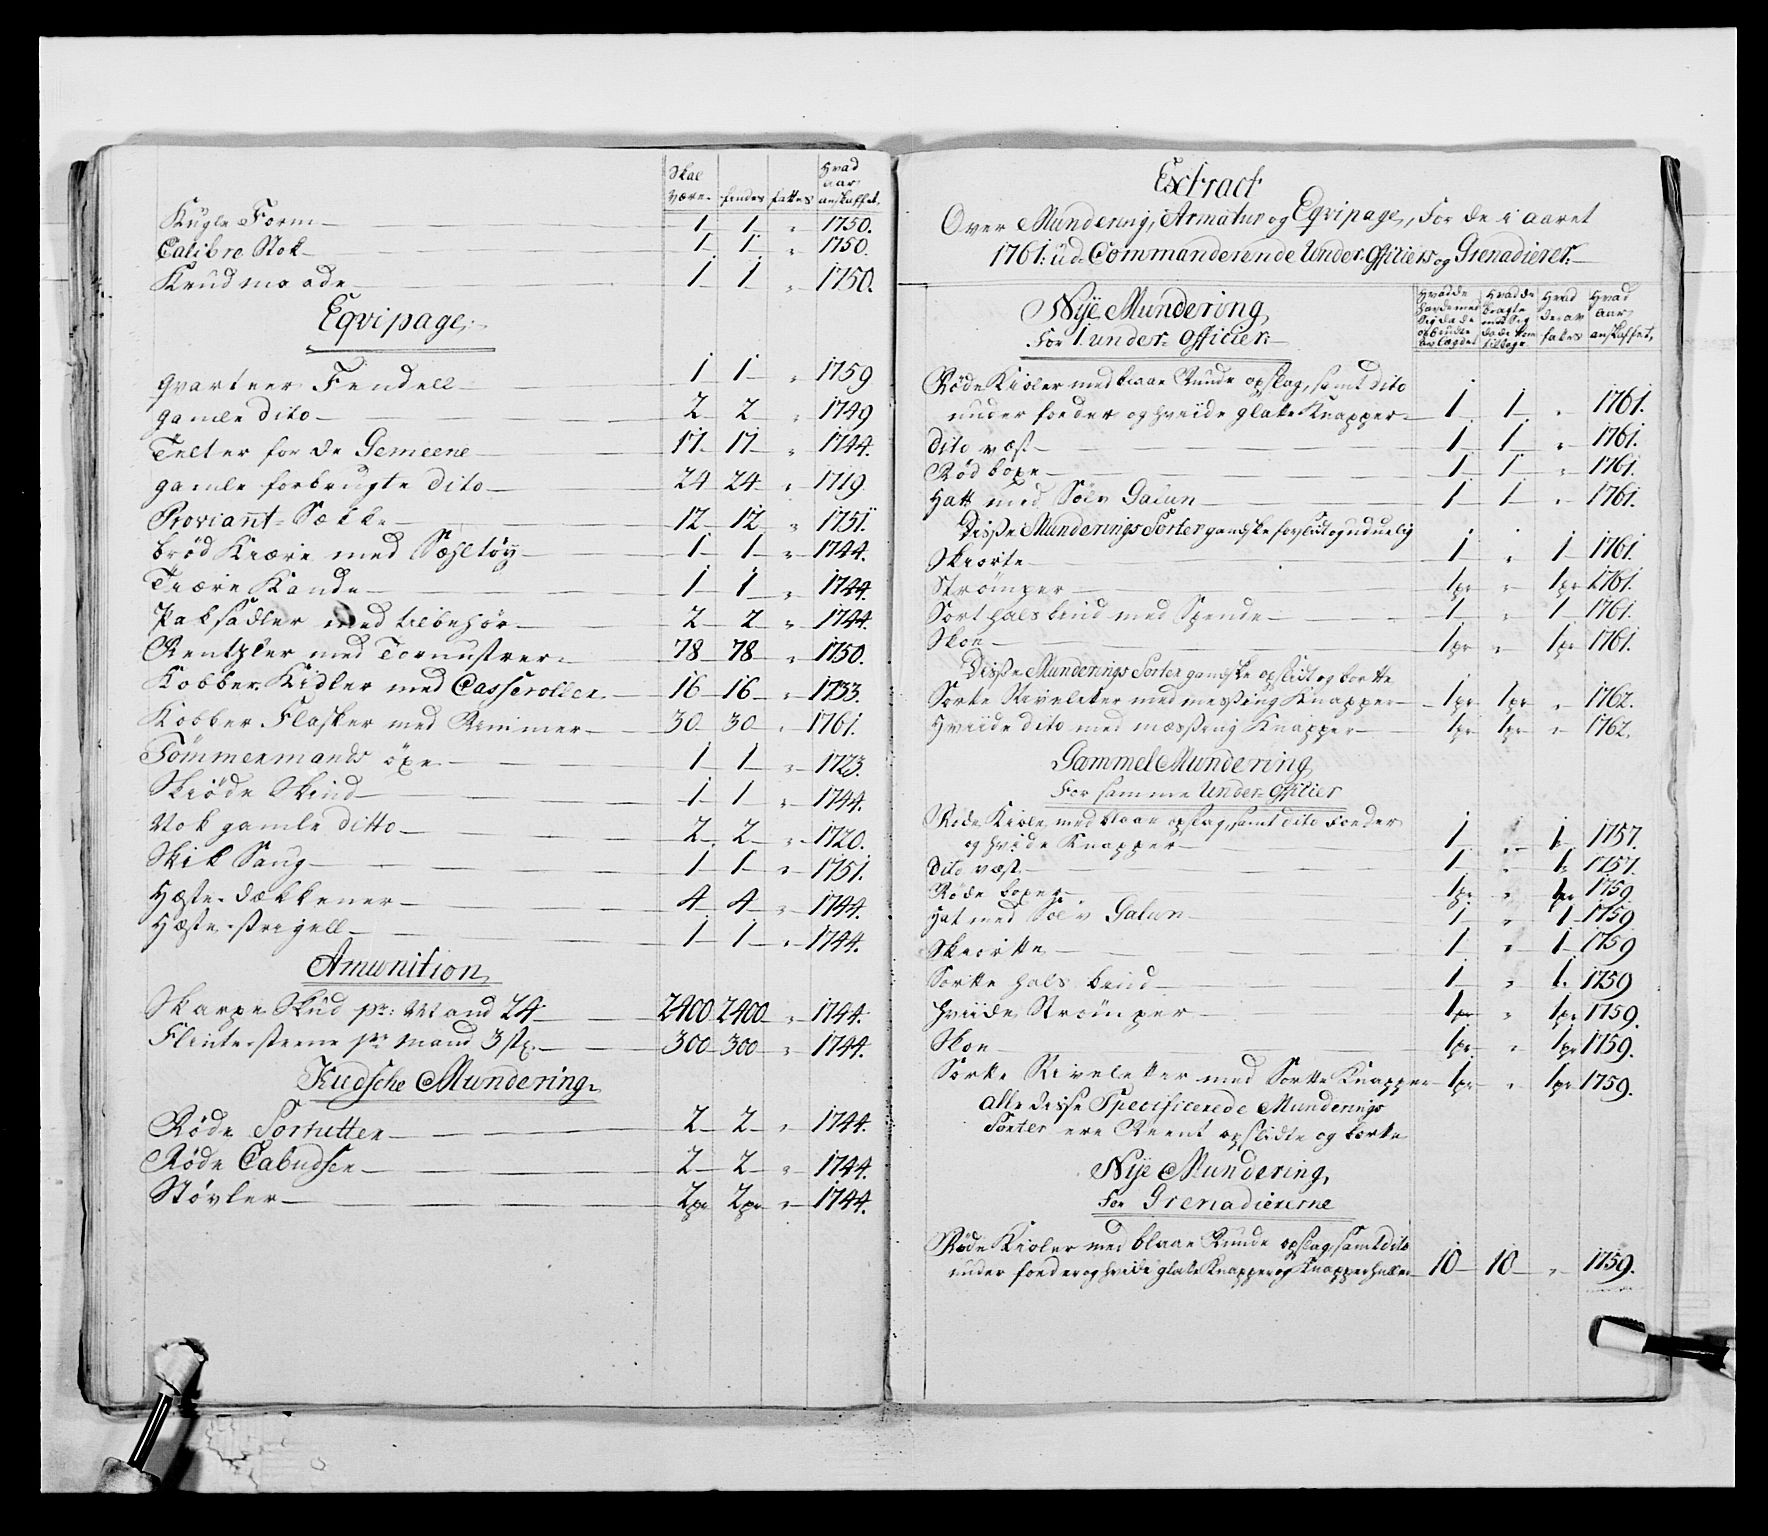 Skal være. findes fattes Hvad aar anskaffet.
Kugle Form 1 1 " 1750.
Calibre Stok 1 1 " 1750.
1 1 " 1750.
Eqvipage.
Qvarteer Fendell 1 1 " 1759
gamle dito 2 2 " 1749
Telter for de Gemeene 17 17 " 1744.
gamle forbrugte dito 24 24 " 1719
Proviant Sække 12 12 " 1751.
brød Kiære med 1 1 " 1744.
Tiære Kande 1 1 " 1744.
Paksadler med tilbehör 2 2 " 1744.
Rentzler med Tornustrer 78 78 " 1750.
Kobber Kidler med Casseroller 16 16 " 1733.
Kobber Flasker med Remmer 30 30 " 1761.
Tømmermands öxe 1 1 " 1723.
Skiöde Skind 1 1 " 1744.
gamle ditto 2 2 " 1720.
Stik Saug 1 1 " 1751.
Hæste dækkener 4 4 " 1744.
Hæste strigell 1 1 " 1744.
Amunition
Skarpe Skud pr: Mand 24 2400 2400 " 1744.
Flinte steene pr Mand 3 stk. 300 300 " 1744.
Kudsche Mundering
Røde Sortutter 2 2 " 1744.
Røde Cabudser 2 2 " 1744.
Støvler 2 pr 2 pr " 1744.
Extract
Over Mundering, Armatur og Eqvipage, For de i aaret
1761. ud Commanderende Under Officiers og Grenadierer.
Hvad de havde med Sig da de Hvad de bragte med Sig da de kom tilbage Hvad der av fattes Hvad Aar anskaffet.
Nÿe Mundering
For 1. under Officier
Røde Kioler med blaae Runde opslag, samt dito
under foeder og hviide glatte Knapper 1 1 " 1761.
dito vest 1 1 " 1761.
Rød boxe 1 1 " 1761.
Hatt med Sölv Galun 1 1 " 1761.
Disse Munderings Sorter gandske forslidt og uduelig
Skiorte 1 " 1 1761.
Strömper 1 pr " 1 pr 1761.
Sort hals bind med Spende 1 " 1 1761.
Skoe 1 pr " 1 pr 1761.
Disse Munderings Sorter gandske opslidt og borte
Sorte Stiveletter med messing Knapper 1 pr 1 pr " 1762.
Hviide dito med messing Knapper 1 pr 1 pr " 1762.
Gammel Mundering
For samme Under Officier
Røde Kiole med blaae opslag, samt dito Foeder
og hvide Knapper 1 " 1 1757.
dito vest 1 " 1 1757.
Røde boxer 1 pr " 1 pr 1759
Hat med Sölv Galun 1 " 1 1759
Skiortte 1 " 1 1759
Sortte hals bind 1 " 1. 1759
Hviide Strömper 1 pr " 1 pr 1759.
Skoe 1 pr " 1 pr 1759.
Sortte Stiveletter med Sortte Knapper 1 pr " 1 pr 1759.
Alle disse Specificerede Munderings
Sorter ere Reent opslidte og borte
Nÿe Mundering,
For Grenadiererne
Røde Kioler med blaae Runde opslag, samt dito
under foeder og hvide glatte Knapper og Knapperhuller 10 10 " 1759.